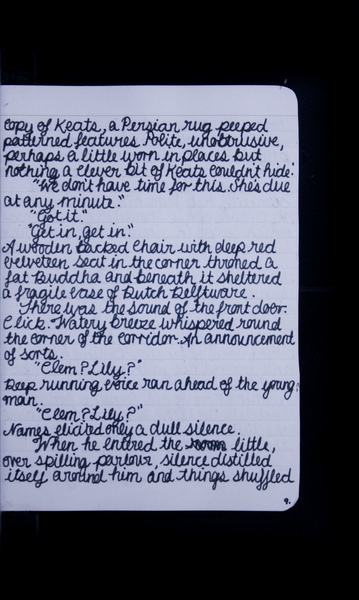 copy of Keats, a Persian rug peeped
patterned features. Polite, unobtrusive,
perhaps a little worn in places but
nothing a clever bit of Keats couldn't hide.
"We don't have time for this. She's due
at any minute."
"Got it."
"Get in, get in."
A wooden backed chair with deep red
velveteen seat in the corner throned a
fat Buddha and beneath it sheltered
a fragile vase of Dutch Delftware.
There was the sound of the front door.
Click. Watery breeze whispered round
the corner of the corridor. An announcement
of sorts.
"Clem? Lily?"
Deep running voice ran ahead of the young
man.
"Clem? Lily?"
Names elicited only a dull silence.
When he entered the little,
over spilling parlour, silence distilled
itself around him and things shuffled
9.